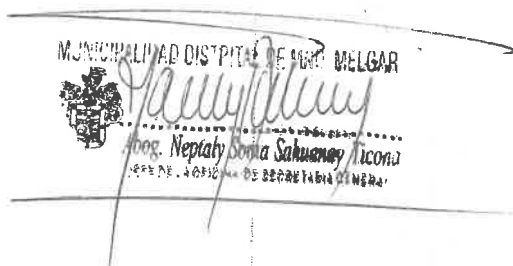 MUNICIPALIDAD DISTRITAL DE MNO. MELGAR
Abog. Neptaly Sahuanay Ticona
JEFE DE LA OFICINA DE SECRETARIA GENERAL